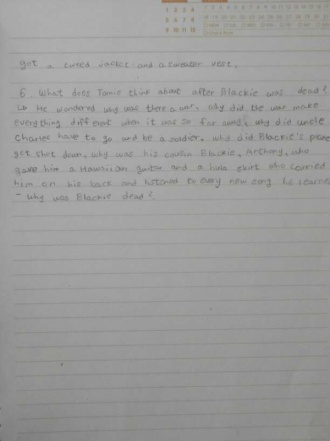 got a tweed jacket and a sweater vest.
6. What does Tomie think about after Blackie was dead?
↳ He wondered why was there a war. why did the war make
everything different when it was so far away, why did uncle
Charles have to go and be a soldier. why did Blackie's plane
get shot down. why was his cousin Blackie, Anthony, who
gave him a Hawaiian guitar and a hula skirt who carried
him on his back and listened to every new song he learned
- why was Blackie dead?.